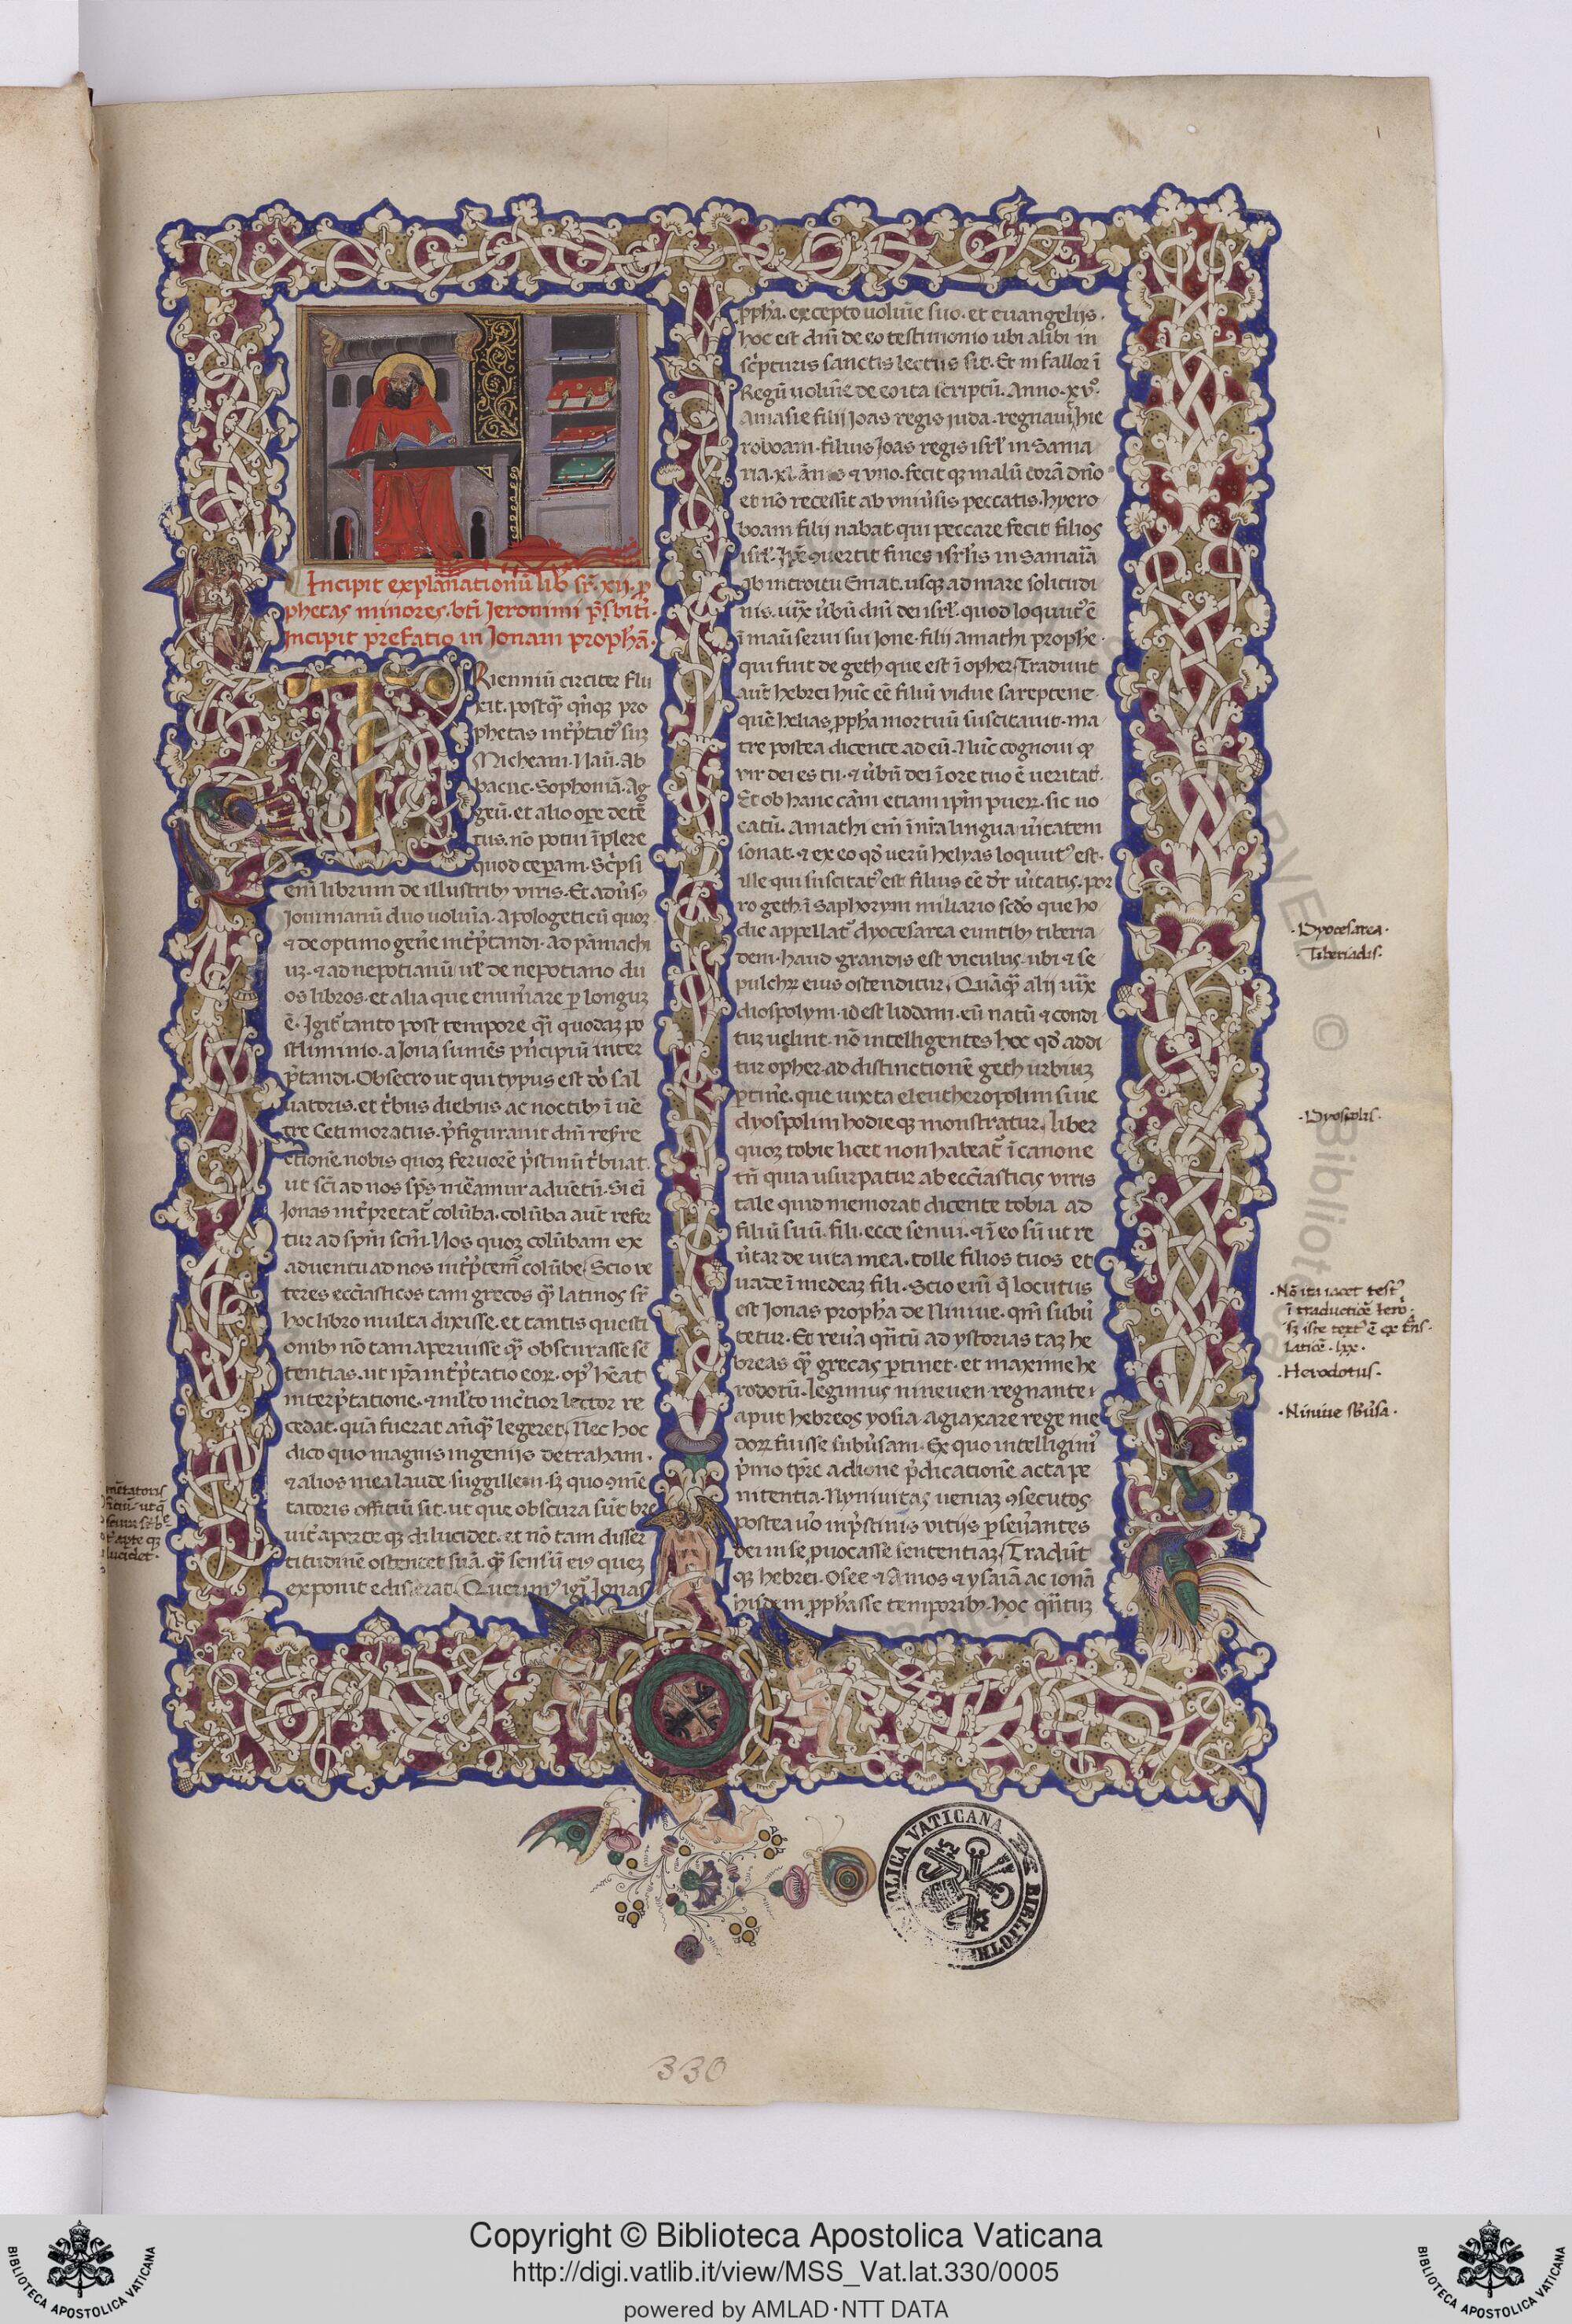 1
Incipit explanationũ lib sr̃. xij. ꝓ
phetas minores. bti Ieronimi p̃sbiti.
Incipit prefatio in Ionam prophã.
TRienniũ circiter flu
xit. postꝗ̃ qñqꝫ pro
phetas int̃p̃tatꝰ suꝫ
Micheam. Naũ. Ab
bacuc. Sophoniã. Ag
geũ. et alio oꝑe detẽ
tus. nõ potui ĩplere
quod ceperam. Sc̃psi
em̃ librum de illustribꝫ viris. Et adũsꝰ
Iouinianũ duo uolum̃a. Apologeticũ quoꝫ
⁊ de optimo geñe int̃p̃tandi. ad pãmachi
uꝫ. ⁊ ad nepotianũ ul̃ de nepotiano du
os libros. et alia que enum̃are ꝑ longuꝫ
ẽ. Igit̃ tanto post tempore q̃i quodaꝫ po
stliminio. a Iona sumẽs p̃ncipiũ inter
p̃tandi. Obsecro ut qui typus est dõ sal
uatoris. et t̃bus diebus ac noctibꝫ ĩ uẽ
tre Ceti moratus. p̃figurauit dñi resre
ctionẽ nobis quoꝫ feruorẽ p̃stinũ t̃buat.
ut sc̃i ad nos sp̃s me᷑amur aduẽtũ. Si em̃
Ionas int̃pretat̃ colũba. colũba aut̃ refer
tur ad sp̃m sc̃m. Nos quoꝫ colũbam ex
aduentu ad nos int̃p̃tem̃ colũbe. Scio ve
teres eccl̃iasticos tam grecos ꝗ̃ latinos sr̃
hoc libro multa dixisse. et tantis questi
onibꝫ nõ tam aperuisse ꝗ̃ obscurasse sẽ
tentias. ut ip̃a int̃p̃tatio eoꝝ. opꝰ hẽat
interp̃tatione. ⁊ ml̃to inc̃tior lector re
cedat. quã fuerat añꝗ̃ legeret. Nec hoc
dico quo magnis ingenijs detraham.
⁊ alios mea laude suggillem. sꝫ quo ꝯmẽ
tatoris officiũ sit. ut que obscura sũt bre
uit̃ aperte qꝫ dilucidet. et nõ tam disser
titudinẽ ostentet suã. ꝗ̃ sensũ eiꝰ queꝫ
exponit edisserat. Querimꝰ igĩ Ionas
ꝓpha. excepto uolũie suo. et euangelijs.
hoc est dñi de eo testimonio ubi alibi in
sc̃pturis sanctis lectus sit. Et ni fallor ĩ
Regũ uolũie de eo ita scriptũ. Anno. xvº.
Amasie filij Ioas regis iuda. regnauit hie
roboam. filius Ioas regis isrl̃ in Sama
ria. xl. ãnis ⁊ vno. fecit qꝫ malũ corã dño
et nõ recessit ab vniũsis peccatis. hyero
boam filij nabat. qui peccare fecit filios
isrl̃. Ip̃e ꝯuertit fines isrl̃is in Samaĩa
Ab introitu Emat. usqꝫ ad mare solitudi
nis. iux̃ ũbũ dñi dei isrl̃. quod loquutꝰ ẽ
ĩ manũ serui sui Ione. filij Amathi prophe.
qui fuit de geth que est ĩ opher. Tradunt
aut̃ hebrei hũc eẽ filiũ vidue sareptene.
quẽ helias ꝓpha mortuũ suscitauit. ma
tre postea dicente ad eũ. Nũc cognoui ꝙ
vir dei es tu. ⁊ ũbũ dei ĩ ore tuo ẽ veritat̃.
Et ob hanc cãm etiam ip̃m pueꝝ. sic uo
catũ. Amathi em̃ ĩ nr̃a lingua ũitatem
sonat. ⁊ ex eo qđ verũ helyas loquutꝰ est.
ille qui suscitatꝰ est filius eẽ dr̃ ũitatis. por
ro geth ĩ Saphorym miliario scdõ que ho
die appellatꝰ dyocesarea euntibꝫ tiberia
dem. haud grandis est viculus. ubi ⁊ se
pulchꝝ eius ostenditur. Quãꝗ̃ alij iux̃
diospolym. id est liddam. eũ natũ ⁊ condi
tuꝫ uelint. nõ intelligentes hoc qđ addi
tur opher. ad distinctionẽ geth urbiuꝫ
ꝑtinẽ. que iuxta eleutheropolim siue
dyospolim hodie qꝫ monstratur. liber
quoꝫ tobie licet non habeatꝰ ĩ canone
tñ quia usurpatur ab eccl̃iasticis viris
tale quid memorat dicente tobia ad
filiũ suũ. fili. ecce senui. ⁊ ĩ eo sũ ut re
ũtar de uita mea. tolle filios tuos et
uade ĩ medeaꝫ fili. Scio em̃ q̃ locutus
est Ionas propha de Niniue. qm̃ subũ
tetur. Et reũa qñtũ ad ystorias taꝫ he
breas ꝗ̃ grecas ꝑtinet. et maxime he
rodotũ. legimus nineuen regnante
aput hebreos yosia. Agiaxare rege me
doꝝ fuisse subũsam. Ex quo intelligimꝰ
p̃mo tp̃re ad ione p̃dicationẽ acta pe
nitentia. Nyniuitas ueniaꝫ ꝯsecutos
postea uõ in p̃stinis vitijs p̃seũantes
dei in se ꝓuocasse sententiaꝫ. Tradũt
qꝫ hebrei. Osee ⁊ Amos ⁊ ysaiã ac ionã
hisdem ꝓphasse temporibꝫ. hoc qñtuꝫ
. Dyocesarea.
. Tiberiadis.
. Dyospolis.
. Nõ ita iacet test̃
ĩ traductiõe Iero.
sꝫ iste textꝰ ẽ ex t̃ns
latiõe. lxx.
. Herodotus.
. Niniue sbũsa.
330
VATICANA
Copyright © Biblioteca Apostolica Vaticana
http://digi.vatlib.it/view/MSS_Vat.lat.330/0005
powered by AMLAD·NTT DATA
BIBLIOTECA APOSTOLICA VATICANA
BIBLIOTECA APOSTOLICA VATICANA